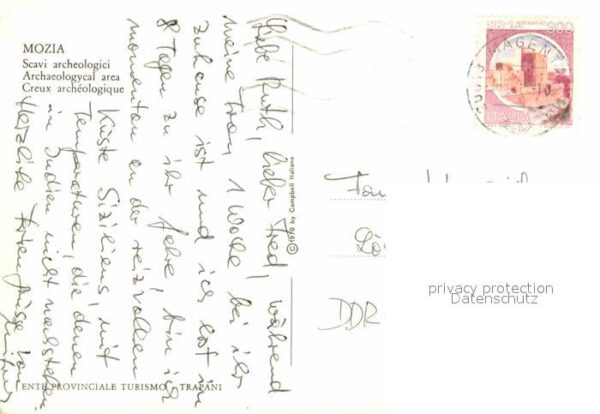 MOZIA
Scavi archeologici
Archaeologycal area
Creux archéologique
Liebe Ruth, lieber Fred, während
meine Frau 1 Woche bei ihr
zuhause ist und ich erst in
8 Tagen zu ihr fahre, bin ich
momentan an der reizvollen
Küste Siziliens, mit
Temperaturen, die denen
in Indien nicht nachstehen.
Herzliche Feriengrüsse von
ENTE PROVINCIALE TURISMO - TRAPANI
© 1970 by Campbell Italiana
300
MAGENTA
ITALIA
DDR
privacy protection
Datenschutz